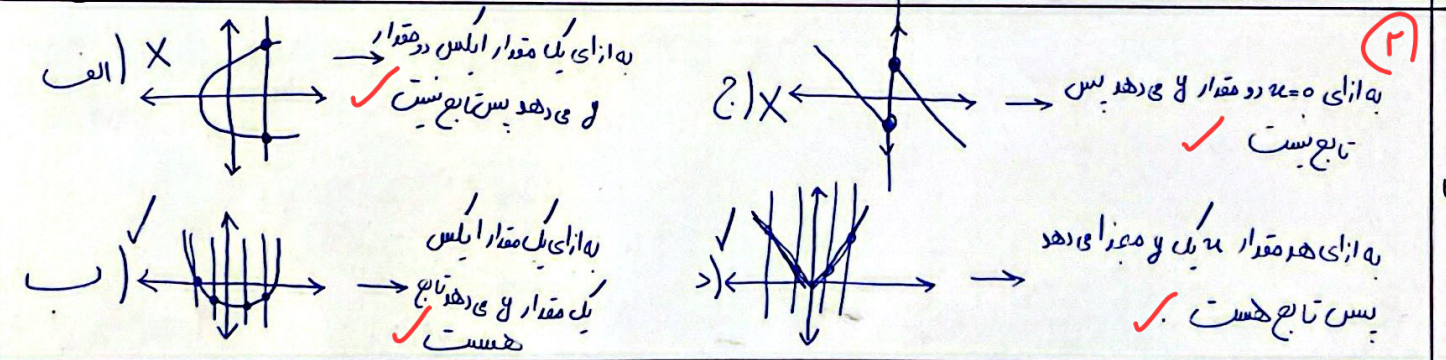 ۲
الف) X
به ازای یک مقدار ایکس دو مقدار
y می دهد پس تابع نیست
ج) X
به ازای x=0 دو مقدار y می دهد پس
تابع نیست
ب)
به ازای یک مقدار ایکس
یک مقدار y می دهد تابع
هست
د)
به ازای هر مقدار x یک y مجزا می دهد
پس تابع هست.